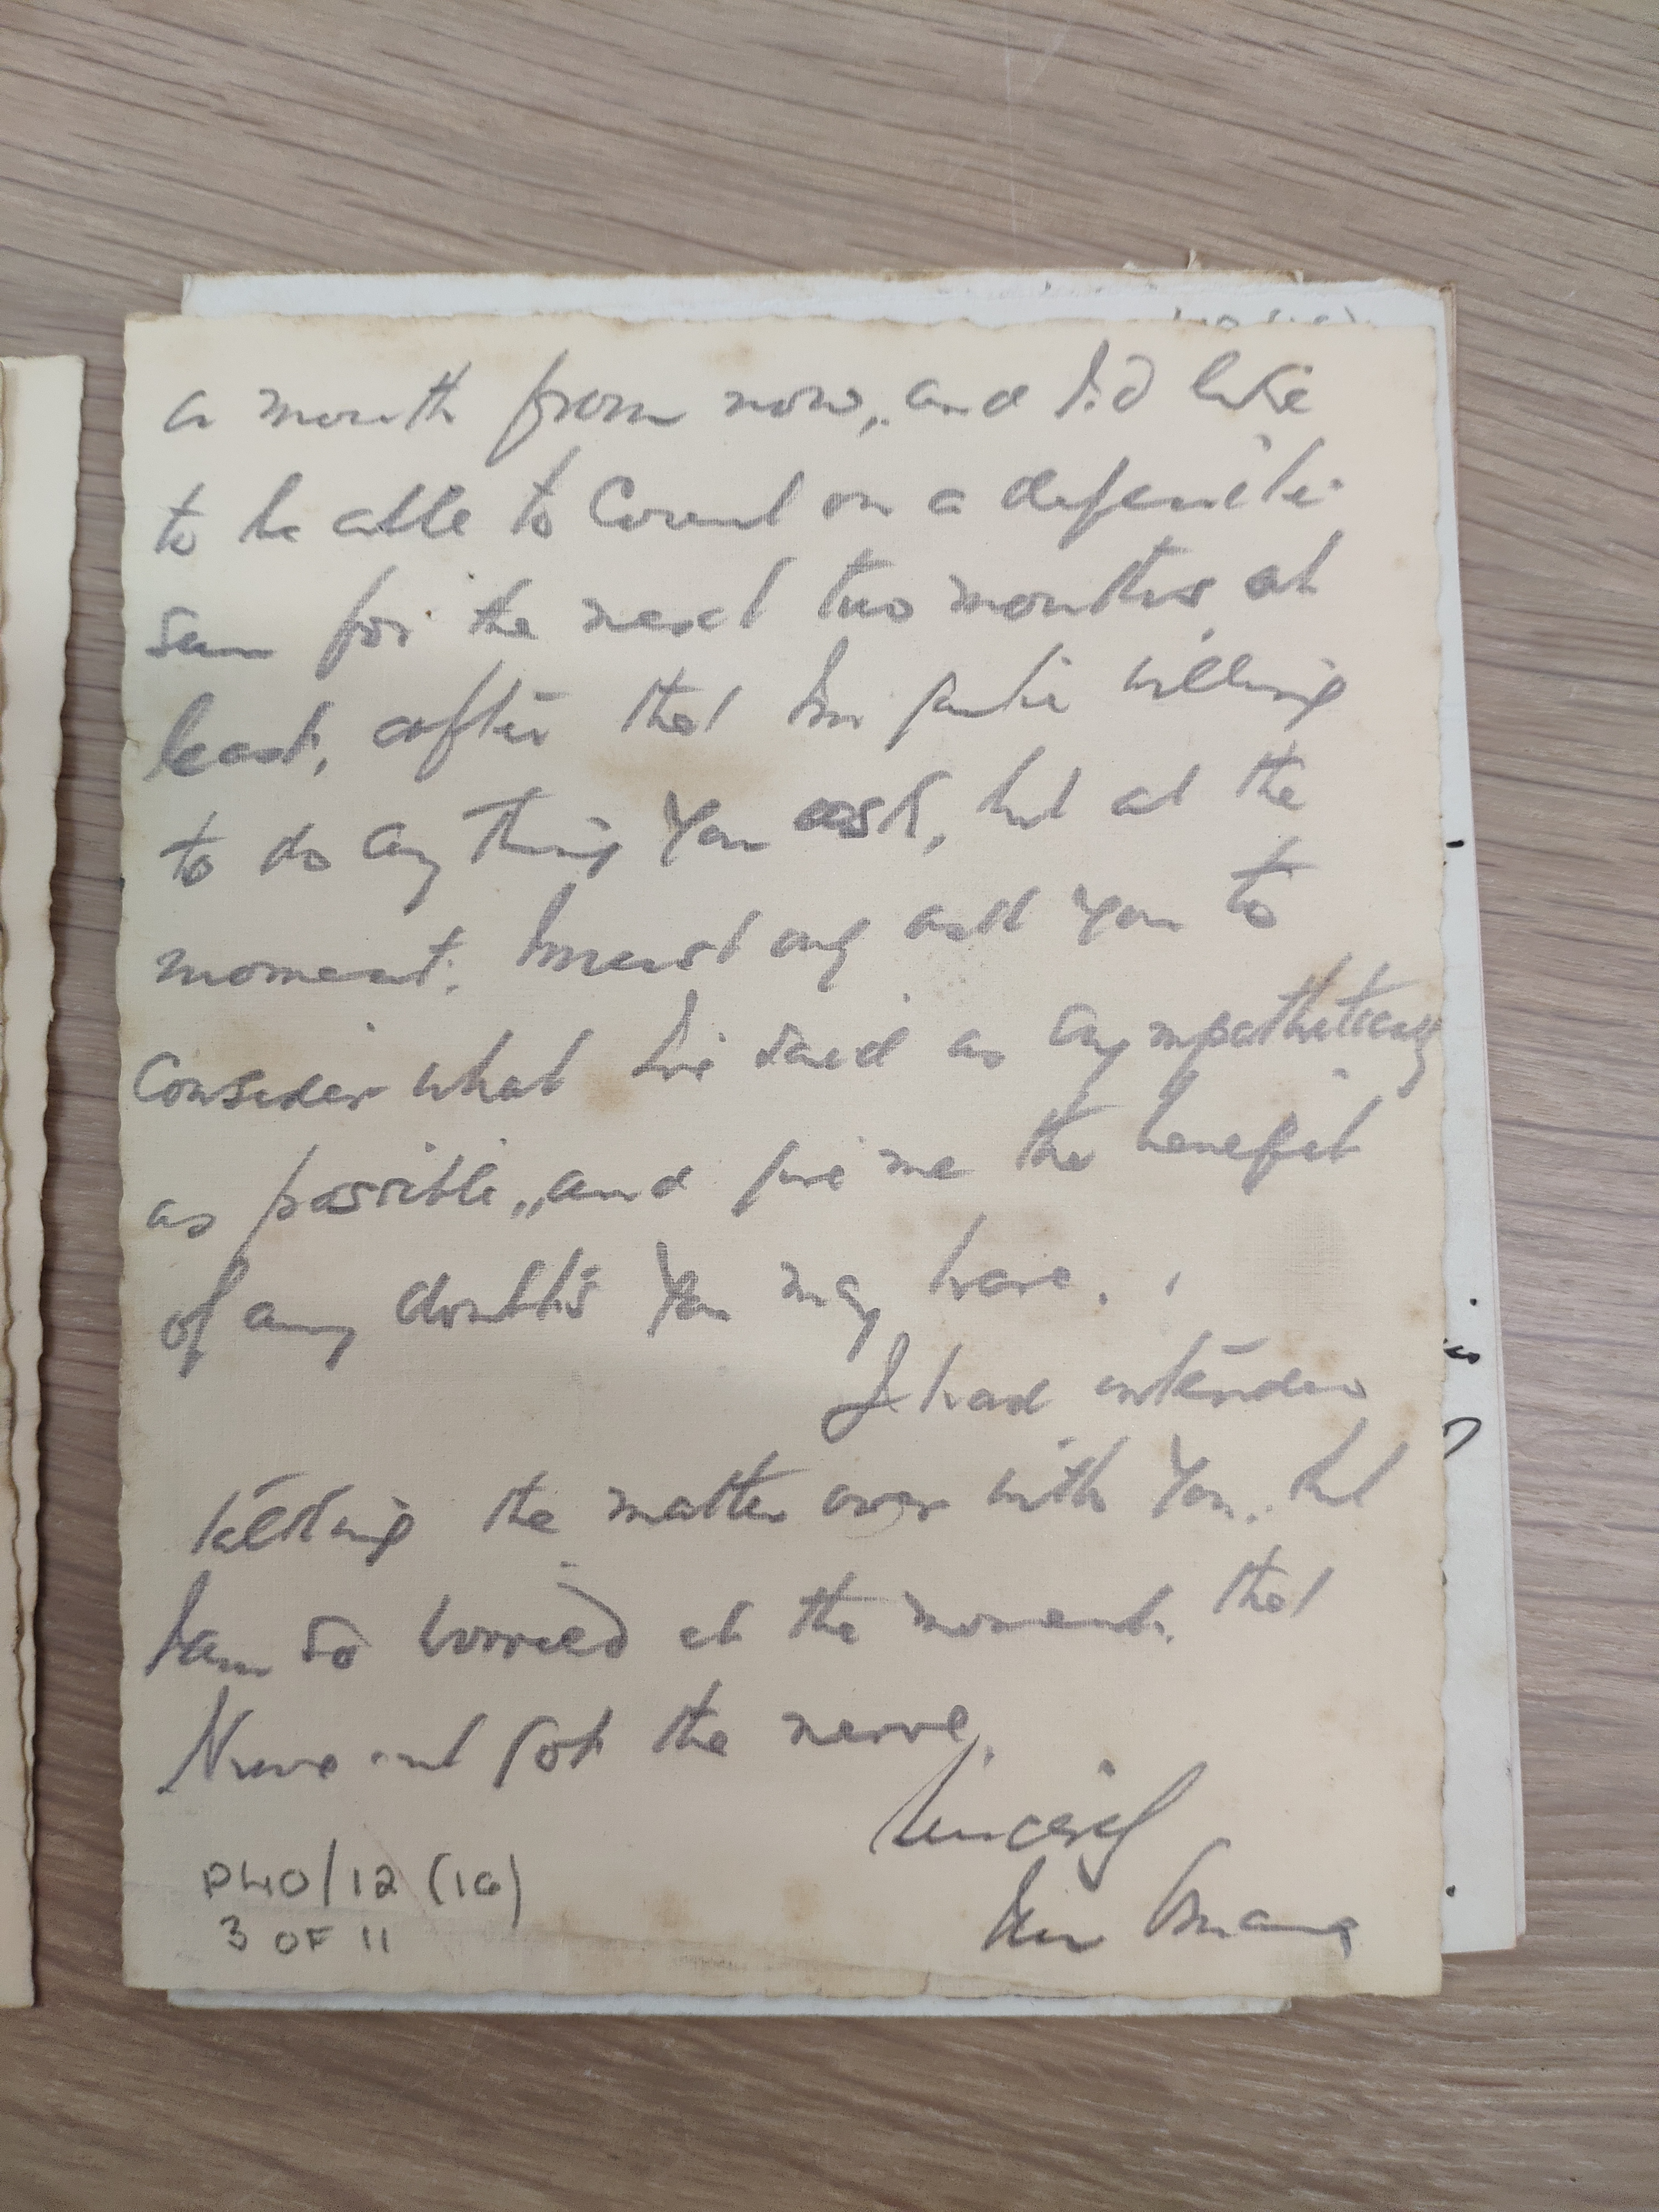 a month from now, and I'd like
to be able to Count on a definite
sum for the next two months, at
least, after that Im quite willing
to do any thing You ask, but at the
moment. I must only ask You to
Consider what I've said as sympathetically
as possible, and give me the benefit
of any doubts You may have.
I had intended
talking the matter over with You. but
I am so worried at the moment. that
I have not got the nerve.
Sincerely
PL10/12 (16)
3 OF 11